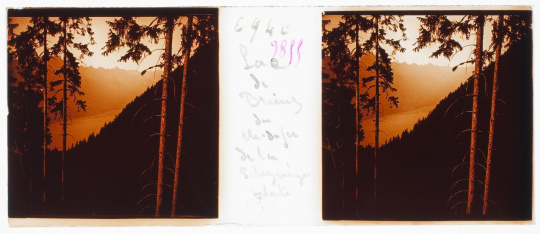 6940
2855
Lac
de
Brienz
du
ch. de fer
de la
Schynige
platte